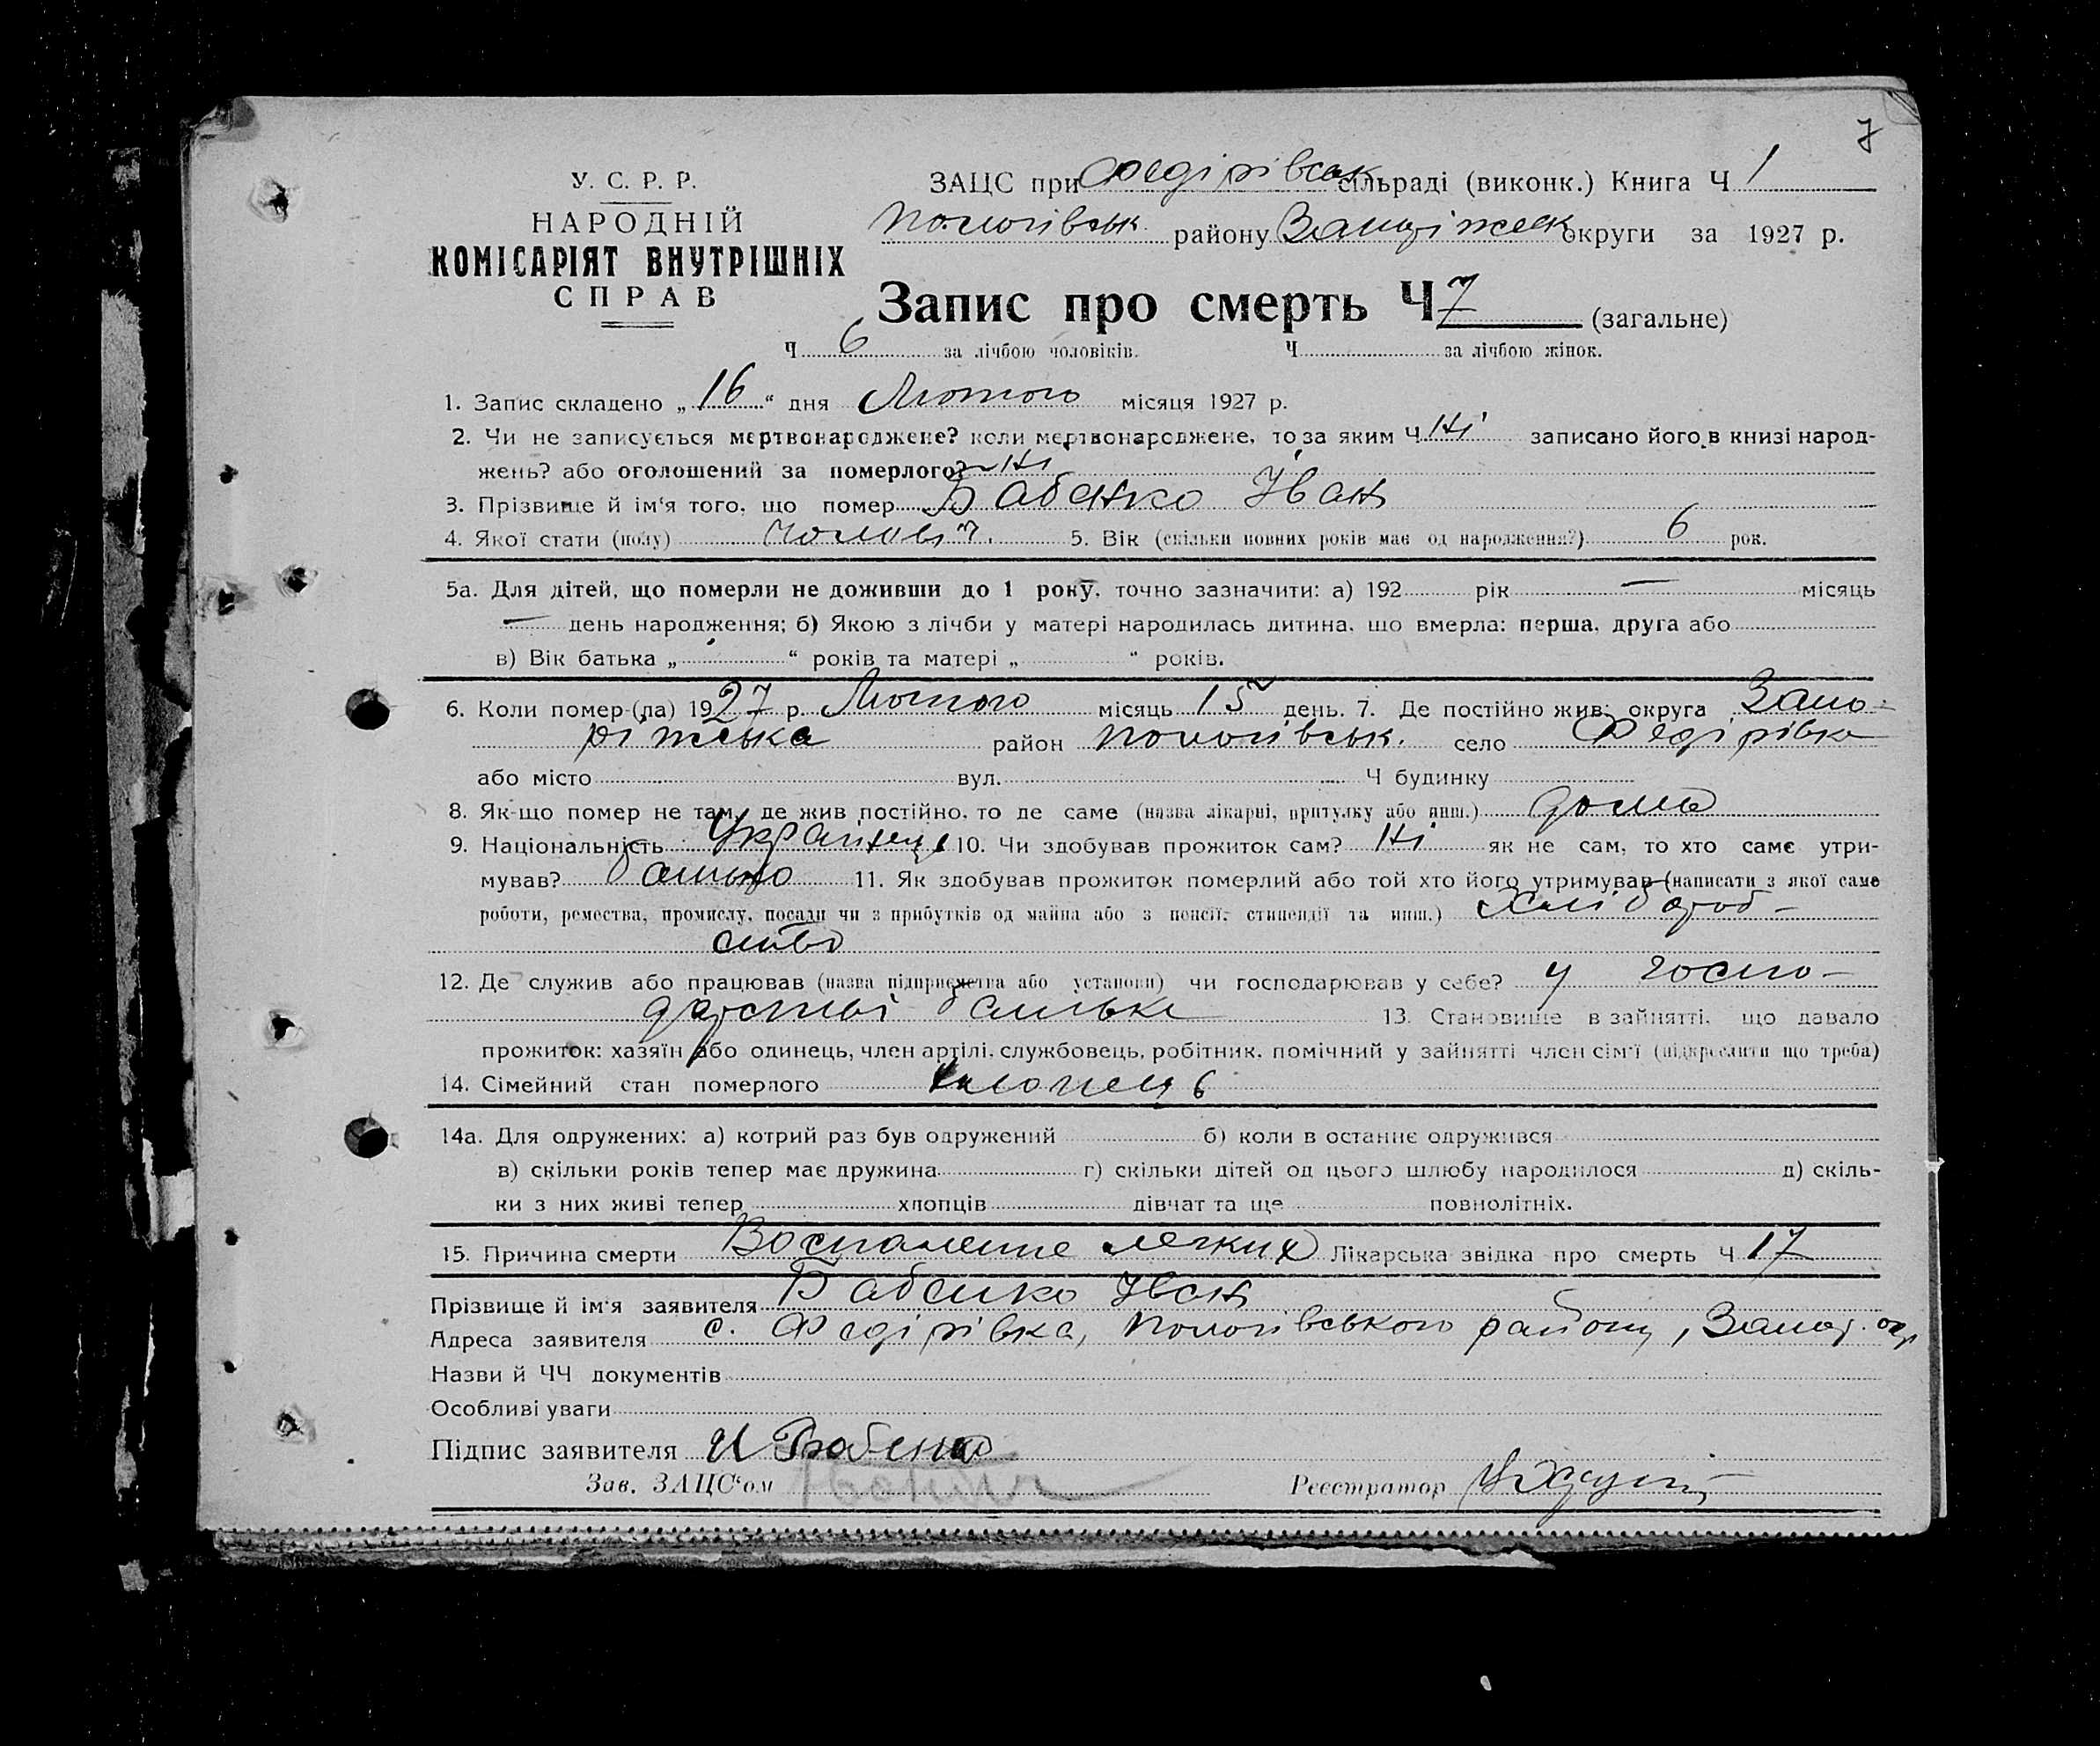 7
У. С. Р. Р.
НАРОДНІЙ
КОМІСАРІЯТ ВНУТРІШНІХ
СПРАВ
ЗАЦС при Федірівськ сільраді (виконк.) Книга Ч 1
Пологівськ району Запоріжськ округи за 1927 р.
Запис про смерть Ч 7 (загальне)
Ч 6 за лічбою чоловіків. Ч за лічбою жінок.
1. Запис складено „16“ дня Лютого місяця 1927 р.
2. Чи не записується мертвонароджене? коли мертвонароджене, то за яким Ч Ні записано його в книзі народ-
жень? або оголошений за померлого? Ні
3. Прізвище й ім‘я того, що помер Бабенко Іван
4. Якої стати (полу) чолов. 5. Вік (скільки повних років має од народження?) 6 рок.
5а. Для дітей, що померли не доживши до 1 року, точно зазначити: а) 192 рік — місяць
— день народження; б) Якою з лічби у матері народилась дитина, що вмерла: перша, друга або
в) Вік батька „ “ років та матері „ “ років.
6. Коли помер-(ла) 1927 р. Лютого місяць 15 день. 7. Де постійно жив: округа Запо-
ріжська район Пологівськ. село Федірівка
або місто вул. Ч будинку
8. Як-що помер не там, де жив постійно, то де саме (назва лікарні, притулку або инш.) дома
9. Національність Українець 10. Чи здобував прожиток сам? Ні як не сам, то хто саме утри-
мував? батько 11. Як здобував прожиток померлий або той хто його утримував (написати з якої саме
роботи, ремества, промислу, посади чи з прибутків од майна або з пенсії, стипендії та инш.) Хлібороб-
ство
12. Де служив або працював (назва підприємства або установи) чи господарював у себе? у госпо-
дарстві батька 13. Становище в зайнятті, що давало
прожиток: хазяїн або одинець, член артілі, службовець, робітник, помічний у зайнятті член сім‘ї (підкреслити що треба)
14. Сімейний стан померлого хлопець
14а. Для одружених: а) котрий раз був одружений б) коли в останнє одружився
в) скільки років тепер має дружина г) скільки дітей од цього шлюбу народилося д) скіль-
ки з них живі тепер хлопців дівчат та ще повнолітніх.
15. Причина смерти Воспаление легких Лікарська звідка про смерть Ч 17
Прізвище й ім‘я заявителя Бабенко Іван
Адреса заявителя с. Федірівка, Пологівського району, Запор. окр
Назви й ЧЧ документів
Особливі уваги
Підпис заявителя И Бабенко
Зав. ЗАЦС‘ом
Реєстратор